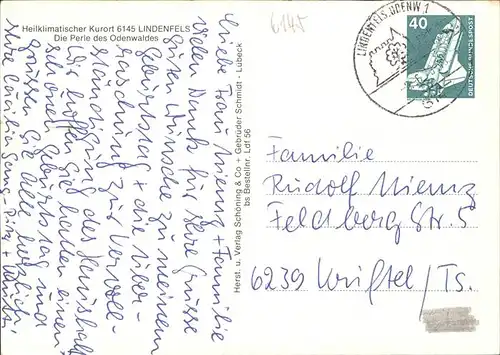 Heilklimatischer Kurort 6145 LINDENFELS
Die Perle des Odenwaldes
6145
Liebe Frau Niemz + Familie
Vielen Dank für Ihre Grüsse
guten Wünsche zu meinem
Geburtstag + die Über-
raschung zur Vervoll-
ständigung des Haushalts
Wir hoffen Sie hatten einen
schönen Geburtstag und
grüssen Sie alle herzlich
Ihre
Herst. u. Verlag Schöning & Co + Gebrüder Schmidt - Lübeck
bs Bestellnr. Ldf 56
LINDENFELS, ODENW 1
40
DEUTSCHE BUNDESPOST
Familie
Rudolf Niemz
Feldbergstr. 5
6239 Kriftel/Ts.